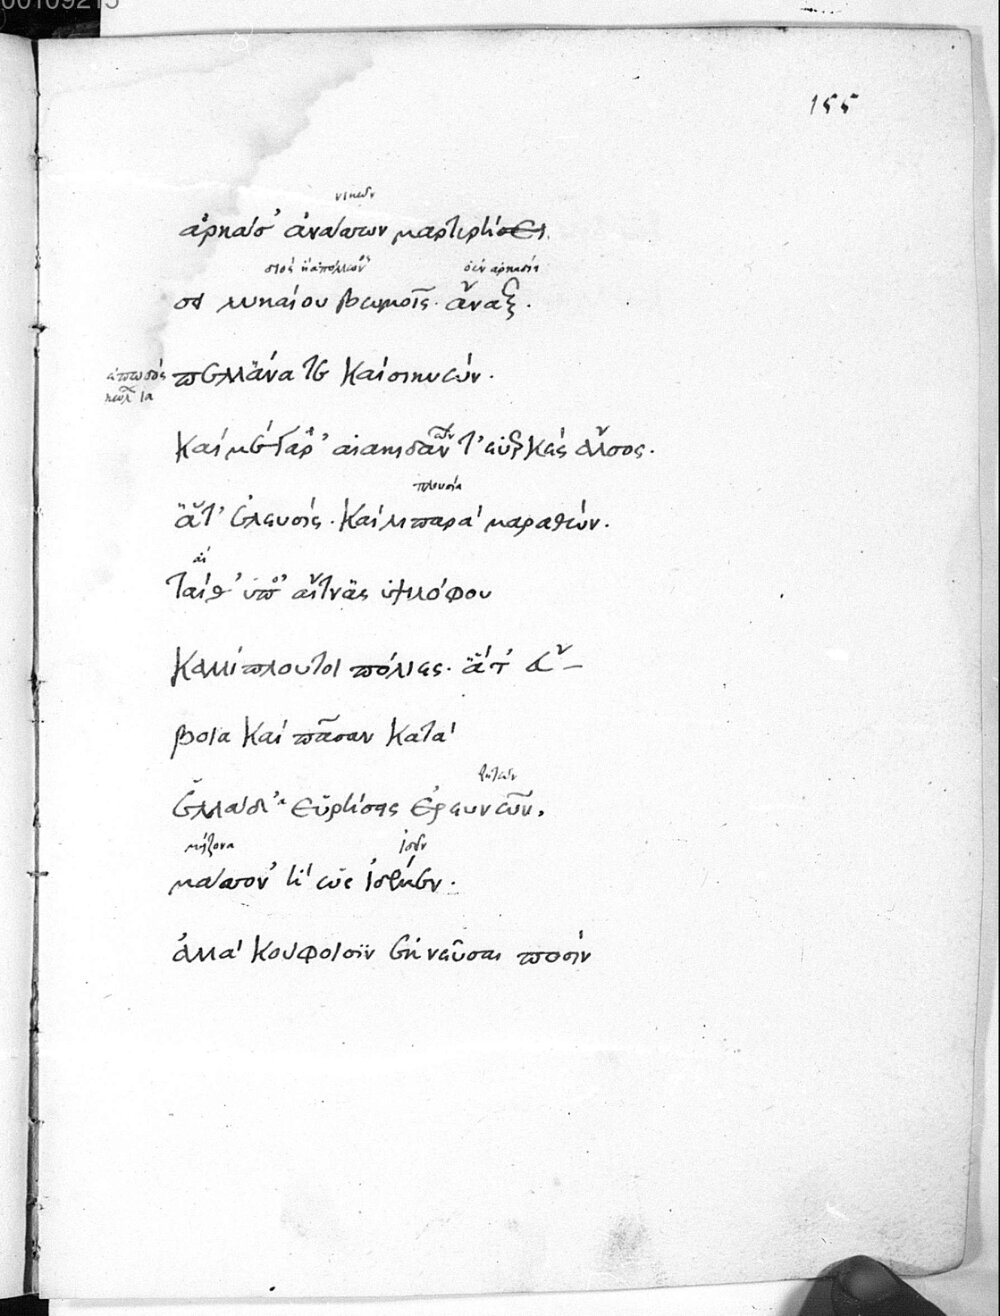 00109215
155
νικῶν
ἀρκάσ' ἀνάσσων μαρτυρήσει
διὸς
σοῦ λυκαίου βωμοῖς· ἄναξ·
πελλάνα τε καὶ σικυών·
καὶ μέγαρ' αἰακιδᾶν τ' εὐερκὲς ἄλσος·
πλουσία
ἅ τ' ἐλευσίς· καὶ λιπαρὰ μαραθών·
αἱ
ταί θ' ὑπ' αἴτνας ὑψιλόφου
καλλίπλουτοι πόλιες· ἅ τ' εὔ–
βοια καὶ πᾶσαν κατὰ
ἑλλάδ' εὑρήσεις ἐρευνῶν,
μείζονα ἰδεῖν
μάσσον' ἢ ὡς ἰδέμεν·
ἀλλὰ κούφοισιν ἐκνεῦσαι ποσίν